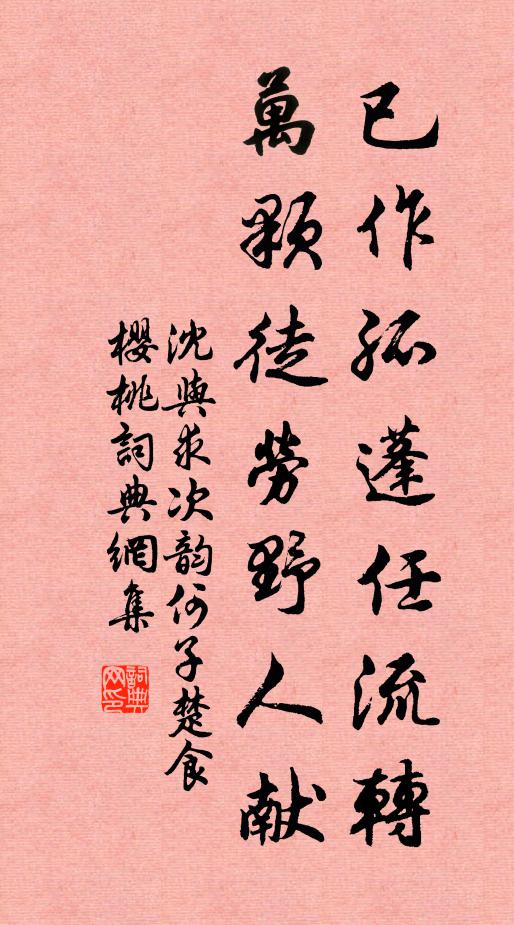 已作孤蓬任流轉
萬顆徒勞野人献
沈與求次韵何子楚食
櫻桃詞典網集
詞典网印